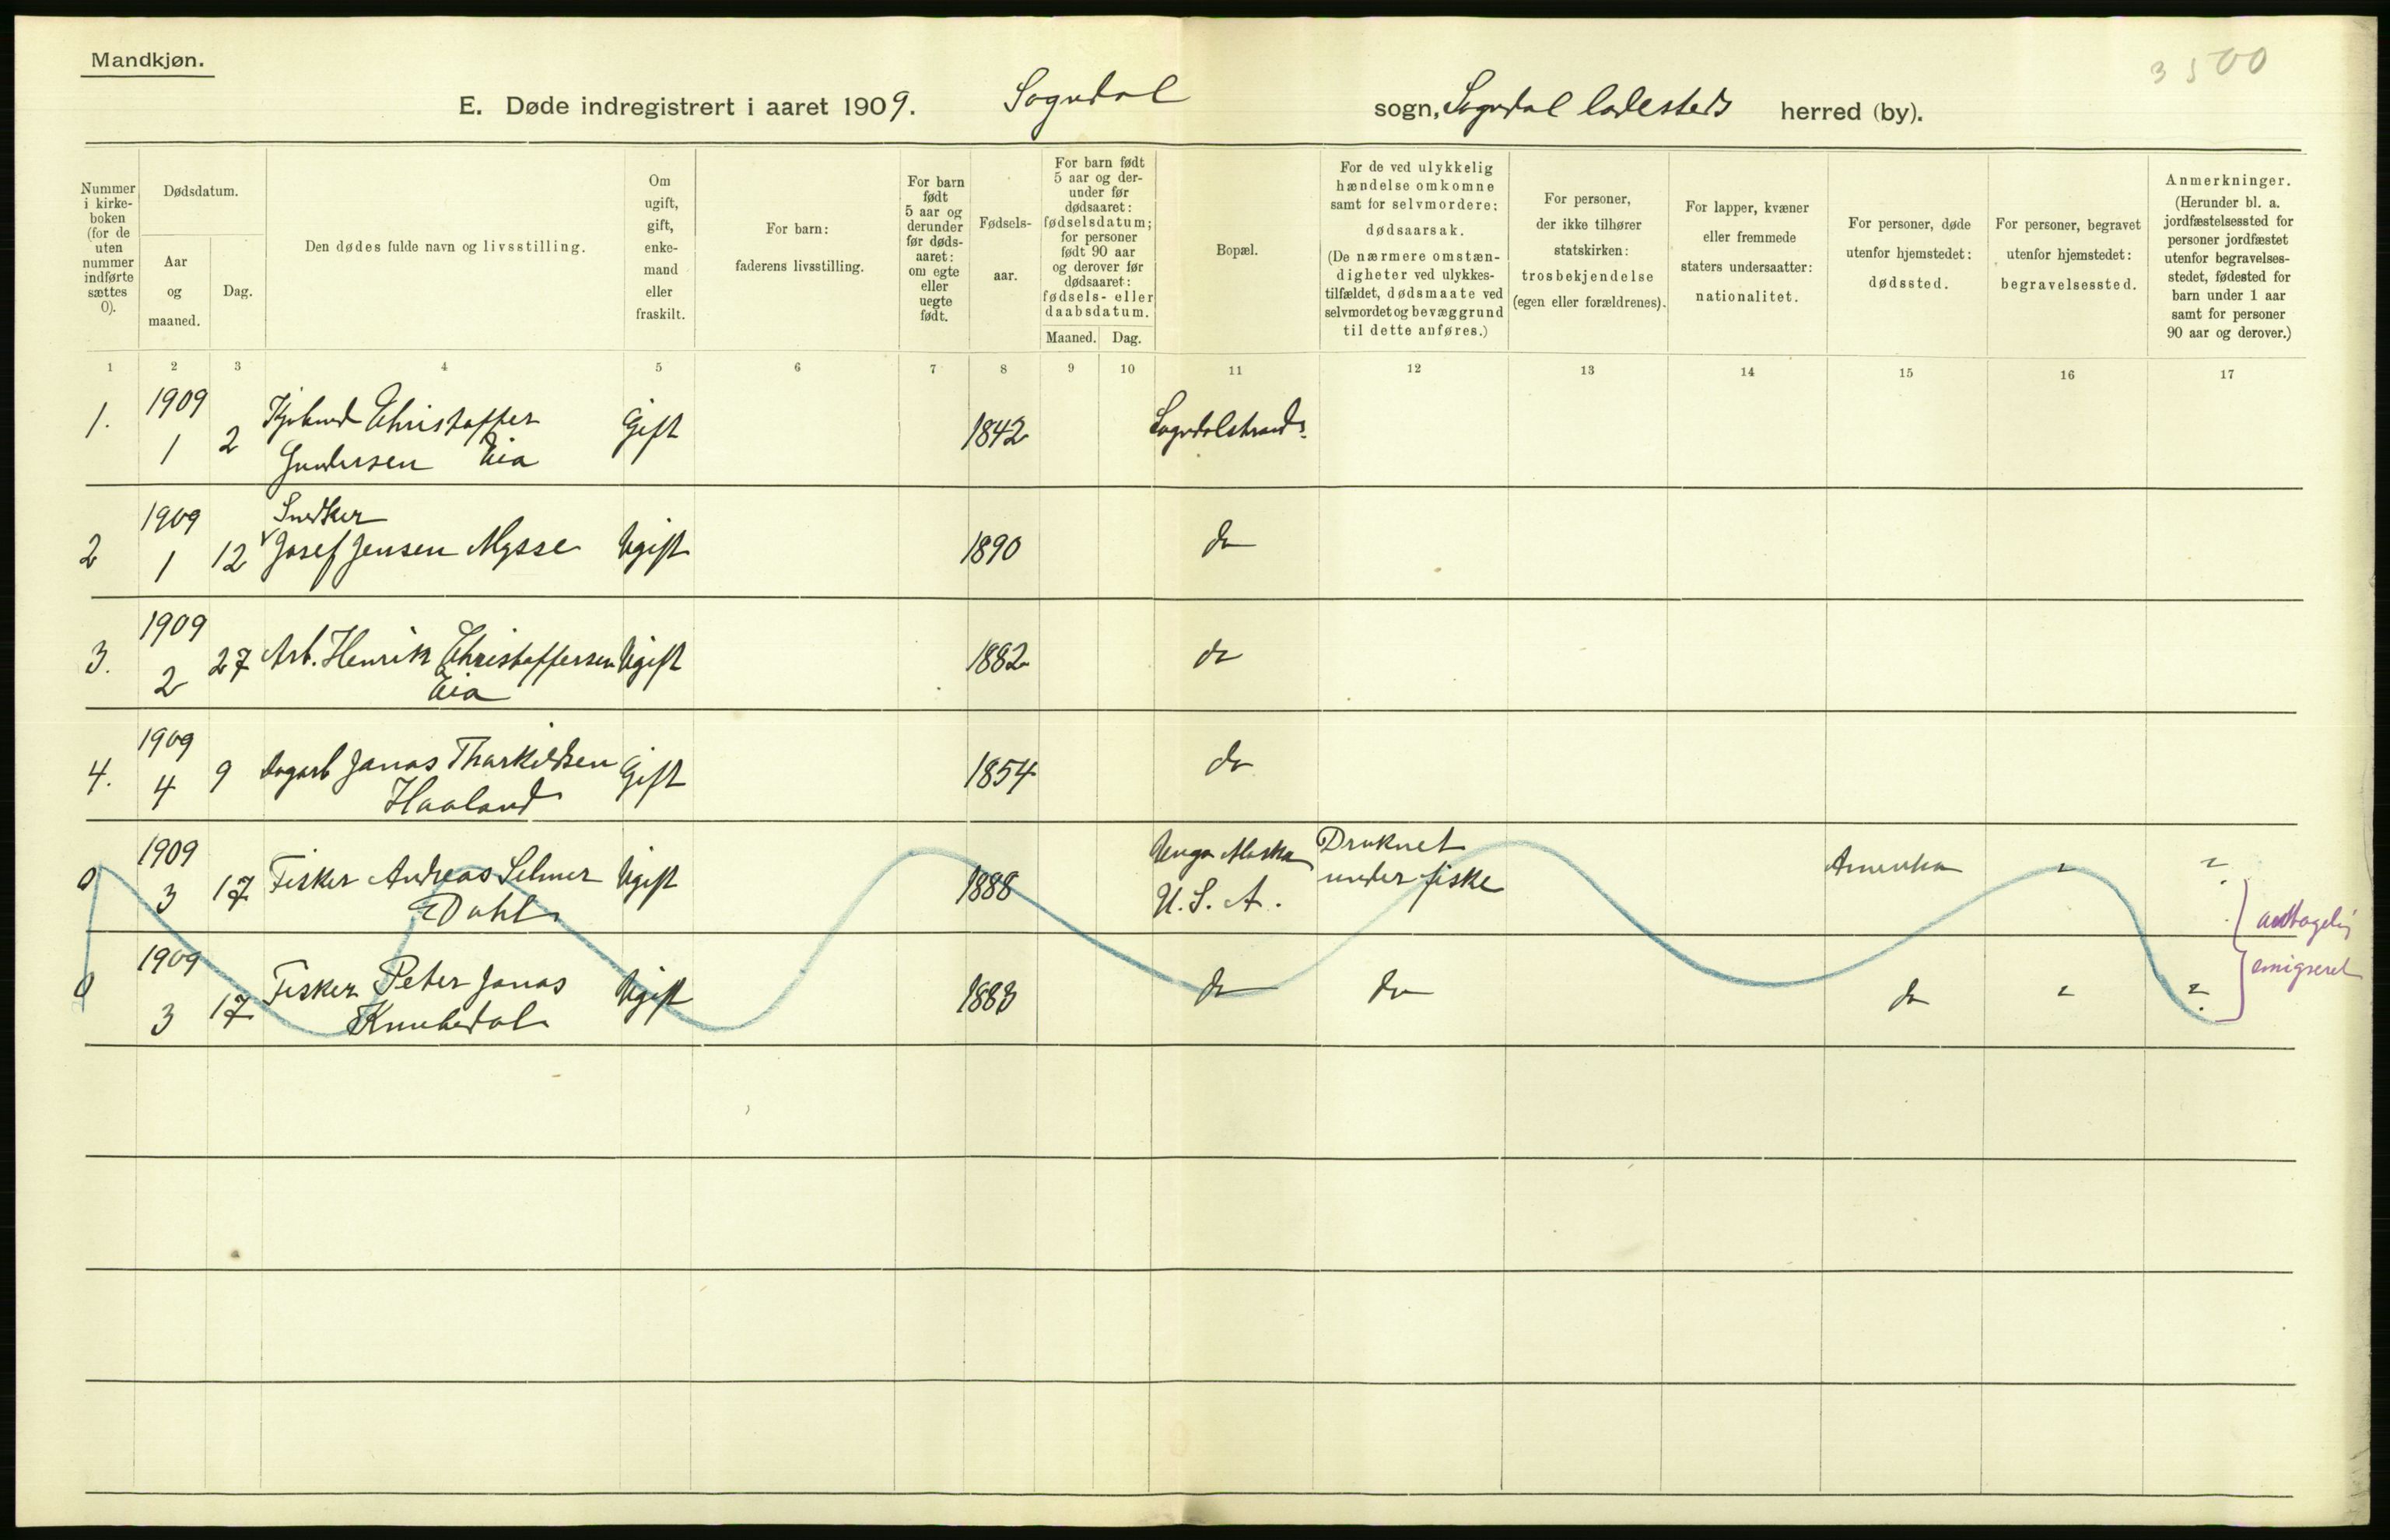 Mandkjøn.
3500
E. Døde indregistrert i aaret 1909. Sogndal sogn, Sogndal ladesteds herred (by).
Nummer i kirke-boken (for de uten nummer indførte sættes 0).
Dødsdatum.
Aar og maaned.
Dag.
Den dødes fulde navn og livsstilling.
Om ugift, gift, enke-mand eller fraskilt.
For barn: faderens livsstilling.
For barn født 5 aar og derunder før døds-aaret: om egte eller uegte født.
Fødsels-aar.
For barn født 5 aar og der-under før dødsaaret: fødselsdatum; for personer født 90 aar og derover før dødsaaret: fødsels- eller daabsdatum.
Maaned. Dag.
Bopæl.
For de ved ulykkelig hændelse omkomne samt for selvmordere: dødsaarsak. (De nærmere omstæn-digheter ved ulykkes-tilfældet, dødsmaate ved selvmordet og bevæggrund til dette anføres.)
For personer, der ikke tilhører statskirken: trosbekjendelse (egen eller forældrenes).
For lapper, kvæner eller fremmede staters undersaatter: nationalitet.
For personer, døde utenfor hjemstedet: dødssted.
For personer, begravet utenfor hjemstedet: begravelsessted.
Anmerkninger. (Herunder bl. a. jordfæstelsessted for personer jordfæstet utenfor begravelses-stedet, fødested for barn under 1 aar samt for personer 90 aar og derover.)
1 2 3 4 5 6 7 8 9 10 11 12 13 14 15 16 17
1. 1909 1 2 Christoffer Gundersen Eia Gift 1842 Sogndalstrand
2 1909 1 12 Snedker Josef Jensen Mysse Ugift 1890 do
3. 1909 2 27 Arb. Henrik Christoffersen Eia Ugift 1882 do
4. 1909 4 9 Dagarb Jonas Tharkildsen Haaland Gift 1854 do
0 1909 3 17 Fisker Andreas Selmer Dahl Ugift 1888 Unga Alaska U.S.A. Druknet under fiske Amerika
0 1909 3 17 Fisker Peter Jonas Knubedal Ugift 1883 do do do
antagelig
emigreret